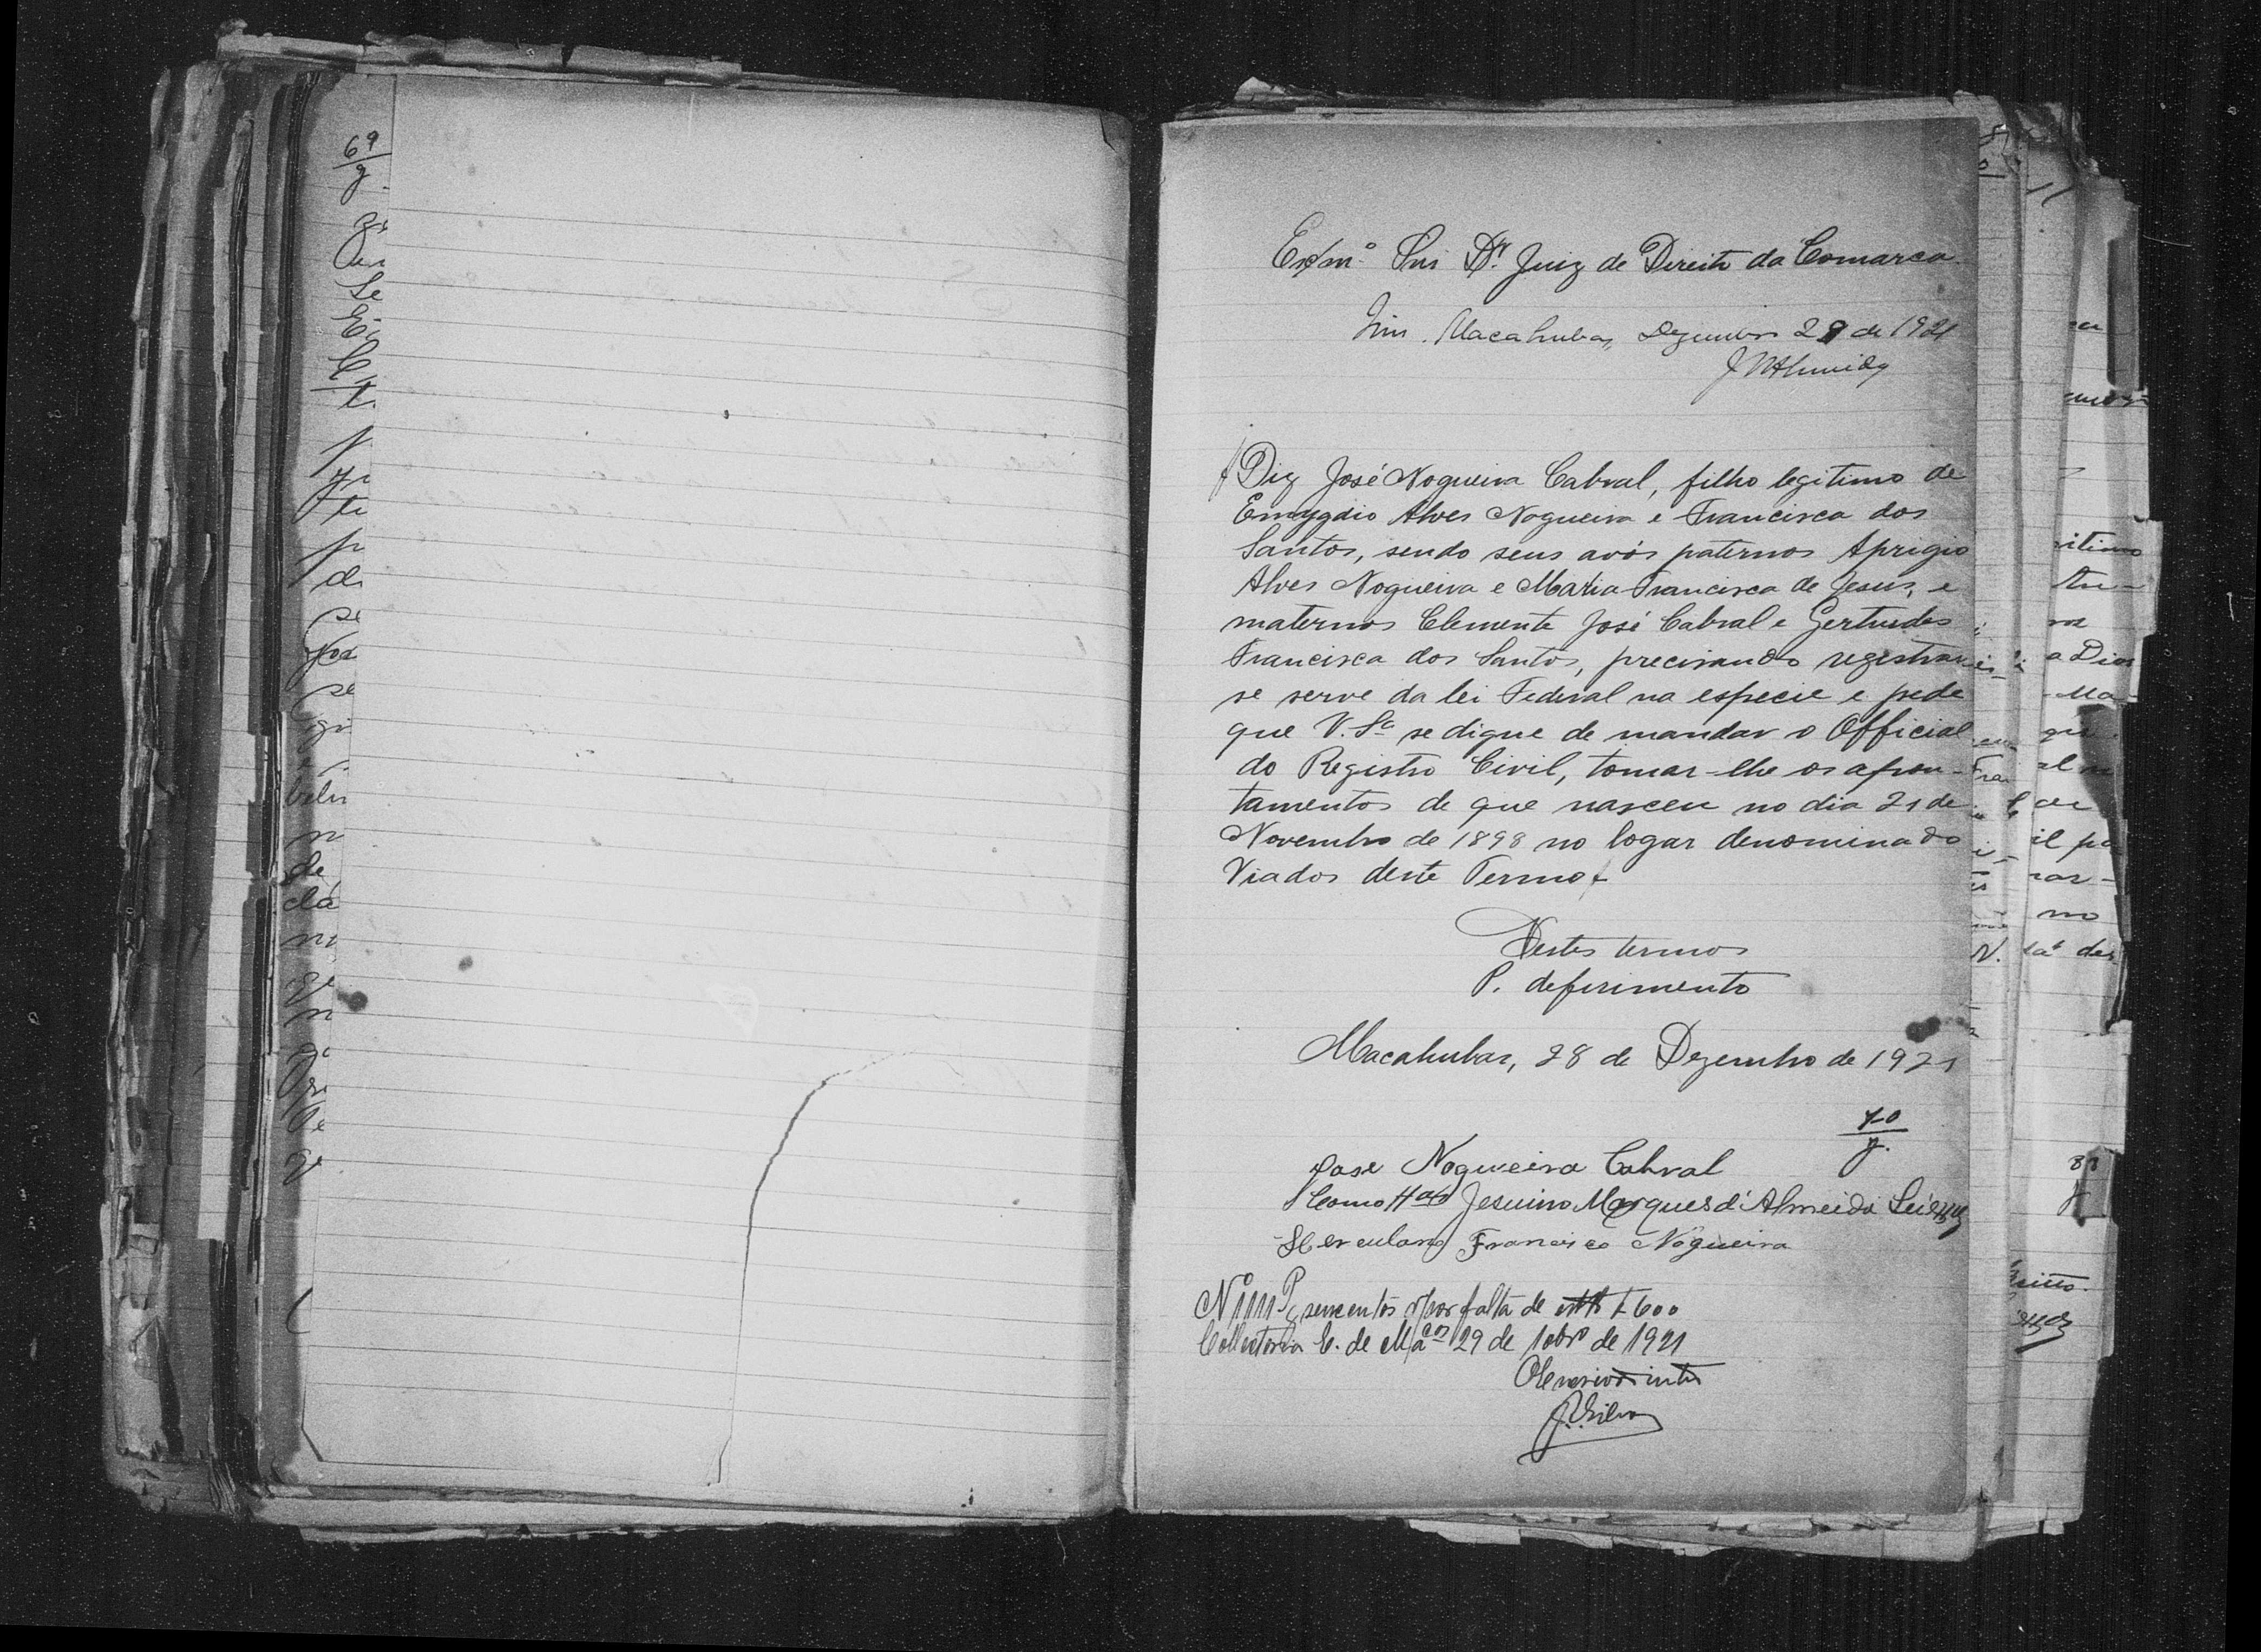 69
Exmº Snr Dr. Juiz de Direito da Comarca
Sim. Macahubas, Dezembro 29 de 1921
J M Almeida
Diz José Nogueira Cabral, filho legitimo de
Emygdio Alves Nogueira e Francisca dos
Santos, sendo seus avós paternos Aprigio
Alves Nogueira e Maria Francisca de Jesus, e
maternos Clemente José Cabral e Gertrudes
Francisca dos Santos, precisando registrar
se serve da lei Federal na especie e pede
que V. Sª se digne de mandar o Official
do Registro Civil, tomar-lhe os apon-
tamentos de que nasceu no dia 21 de
Novembro de 1898 no logar denominado
Viados deste Termo.
Nestes termos
P. deferimento
Macahubas, 28 de Dezembro de 1921
70
José Nogueira Cabral
Como Jesuino Marques d'Almeida
Herculano Francisco Nogueira
Nº 1111 P. seiscentos rs por falta de 600
Collectoria E. de Macas 29 de 10bro de 1921
O
J. Silva